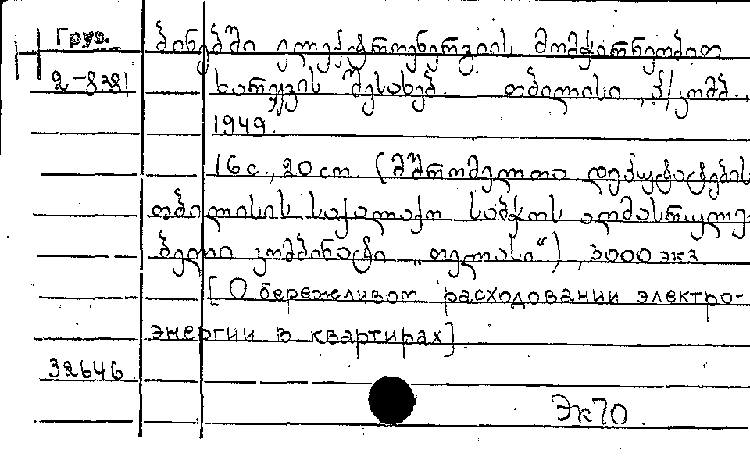 Груз. ბინებში ელექტროენერგიის მომჭირნეობით
2-8381 ხარჯვის შესახებ. თბილისი, პ/კომბ.,
1949.
16 с., 20 см. (მშრომელთა დეპუტატების
თბილისის საქალაქო საბჭოს აღმასრულე-
ბელი კომბინატი „თელასი“), 3000 экз
[О бережливом расходовании электро-
энергии в квартирах]
32646
Эк70.